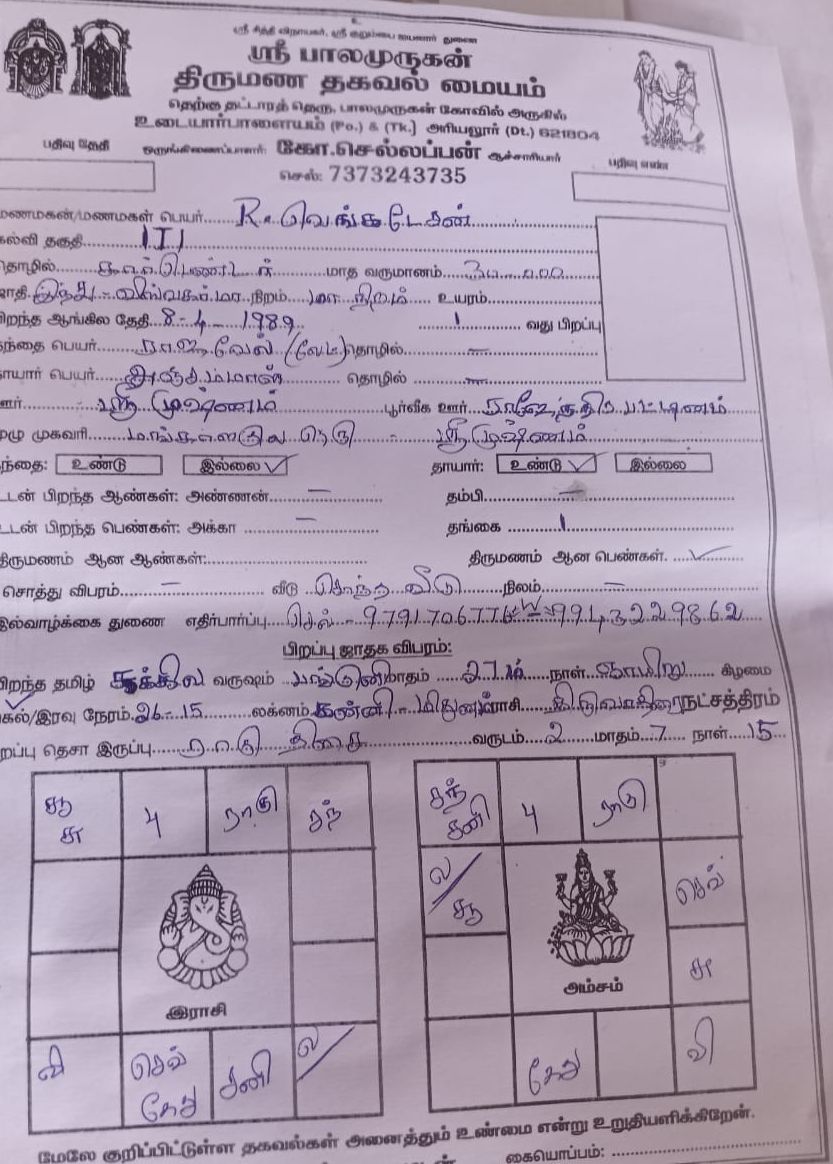 ஸ்ரீ சித்தி விநாயகர், ஸ்ரீ துணை
ஸ்ரீ பாலமுருகன்
திருமண தகவல் மையம்
தெற்கு தட்டாரத் தெரு, பாலமுருகன் கோவில் அருகில்
உடையார்பாளையம் (Po.) & (Tk.) அரியலூர் (Dt.) 621804
பதிவு தேதி ஒருங்கிணைப்பாளர்: கோ.செல்லப்பன் ஆச்சாரியார் பதிவு எண்
செல்: 7373243735
மணமகன்/மணமகள் பெயர் R. வெங்கடேசன்
கல்வி தகுதி ITI
தொழில் மாத வருமானம்
இந்து - விஸ்வகர்மா நிறம் மா நிறம் உயரம்
பிறந்த ஆங்கில தேதி 8-4-1989 1 வது பிறப்பு
தந்தை பெயர் ராஜவேல் (லேட்) தொழில் —
தாயார் பெயர் அஞ்சம்மாள் தொழில் —
ஊர் ஸ்ரீமுஷ்ணம் பூர்வீக ஊர்
முழு முகவரி தெரு - ஸ்ரீமுஷ்ணம்
தந்தை: உண்டு இல்லை ✓ தாயார்: உண்டு ✓ இல்லை
உடன் பிறந்த ஆண்கள்: அண்ணன் — தம்பி —
உடன் பிறந்த பெண்கள்: அக்கா — தங்கை 1
திருமணம் ஆன ஆண்கள்: திருமணம் ஆன பெண்கள். ✓
சொத்து விபரம் — வீடு சொந்த வீடு நிலம் —
இல்வாழ்க்கை துணை எதிர்பார்ப்பு செல் - 9791706776 W 9943229862
பிறப்பு ஜாதக விபரம்:
பிறந்த தமிழ் சுக்கில வருஷம் பங்குனி மாதம் 27ம் நாள் ஞாயிறு கிழமை
பகல்/இரவு நேரம் 26-15 லக்னம் கன்னி - மிதுனம் ராசி திருவாதிரை நட்சத்திரம்
பிறப்பு தெசா இருப்பு ராகு திசை வருடம் 2 மாதம் 7 நாள் 15
சூ சு பு குரு சந்
இராசி
வி செவ் கேது சனி ல/
சந் சனி பு குரு
ல/ சூ செவ்
சு
அம்சம்
கேது வி
மேலே குறிப்பிட்டுள்ள தகவல்கள் அனைத்தும் உண்மை என்று உறுதியளிக்கிறேன்.
கையொப்பம்: